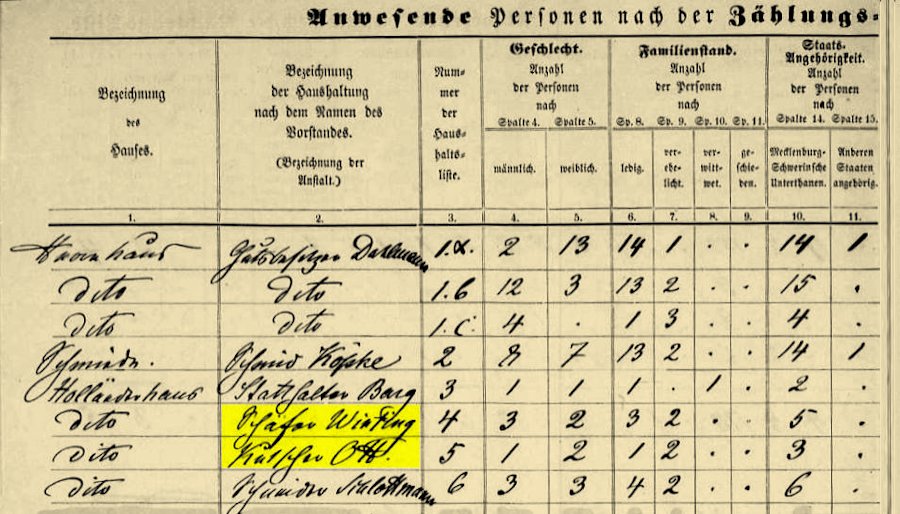 Anwesende Personen nach der Zählungs-
Bezeichnung des Hauses.
Bezeichnung der Haushaltung nach dem Namen des Vorstandes. (Bezeichnung der Anstalt.)
Num- mer der Haus- halts- liste.
Geschlecht. Anzahl der Personen nach
Spalte 4. Spalte 5.
männlich. weiblich.
Familienstand. Anzahl der Personen nach
Sp. 8. Sp. 9. Sp. 10. Sp. 11.
ledig. ver- ehe- licht. ver- witt- wet. ge- schie- den.
Staats- Angehörigkeit. Anzahl der Personen nach
Spalte 14. Spalte 15.
Mecklenburg- Schwerinsche Unterthanen. Anderen Staaten angehörig.
1. 2. 3. 4. 5. 6. 7. 8. 9. 10. 11.
Herrenhaus Gutsbesitzer 1.a. 2 13 14 1 . . 14 1
dito dito 1.b 12 3 13 2 . . 15 .
dito dito 1.c. 4 . 1 3 . . 4 .
Schmiede. Schmied Köpke 2 8 7 13 2 . . 14 1
Holländerhaus Statthalter Barg 3 1 1 1 . 1 . 2 .
dito Schäfer 4 3 2 3 2 . . 5 .
dito Kutscher Ott. 5 1 2 1 2 . . 3 .
dito Schneider 6 3 3 4 2 . . 6 .